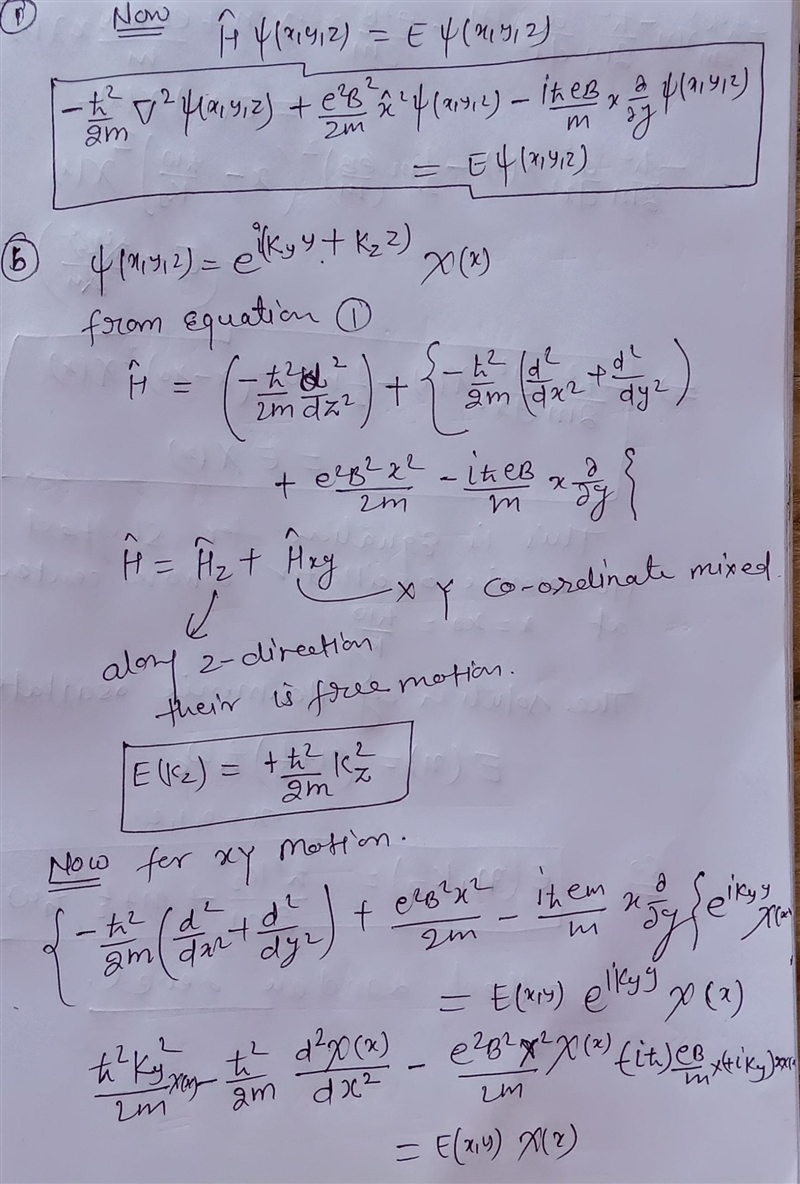 ① Now Ĥ ψ(x,y,z) = E ψ(x,y,z)
-ħ²/2m ∇² ψ(x,y,z) + e²B²/2m x̂² ψ(x,y,z) - iħeB/m x ∂/∂y ψ(x,y,z)
= E ψ(x,y,z)
⑤ ψ(x,y,z) = e^{i(Kyy + Kzz)} X(x)
from equation ①
Ĥ = (-ħ²/2m d²/dz²) + {-ħ²/2m (d²/dx² + d²/dy²)
+ e²B²x²/2m - iħeB/m x ∂/∂y }
Ĥ = Ĥz + Ĥxy
X Y co-ordinate mixed.
along z-direction
their is free motion.
E(Kz) = +ħ²/2m Kz²
Now for xy motion.
{-ħ²/2m (d²/dx² + d²/dy²) + e²B²x²/2m - iħem/m x ∂/∂y} e^{iKyy} X(x)
= E(x,y) e^{iKyy} X(x)
ħ²Ky²/2m X(x) - ħ²/2m d²X(x)/dx² - e²B²x²/2m X(x) (-iħ) eB/m x(+iKy)
= E(x,y) X(x)